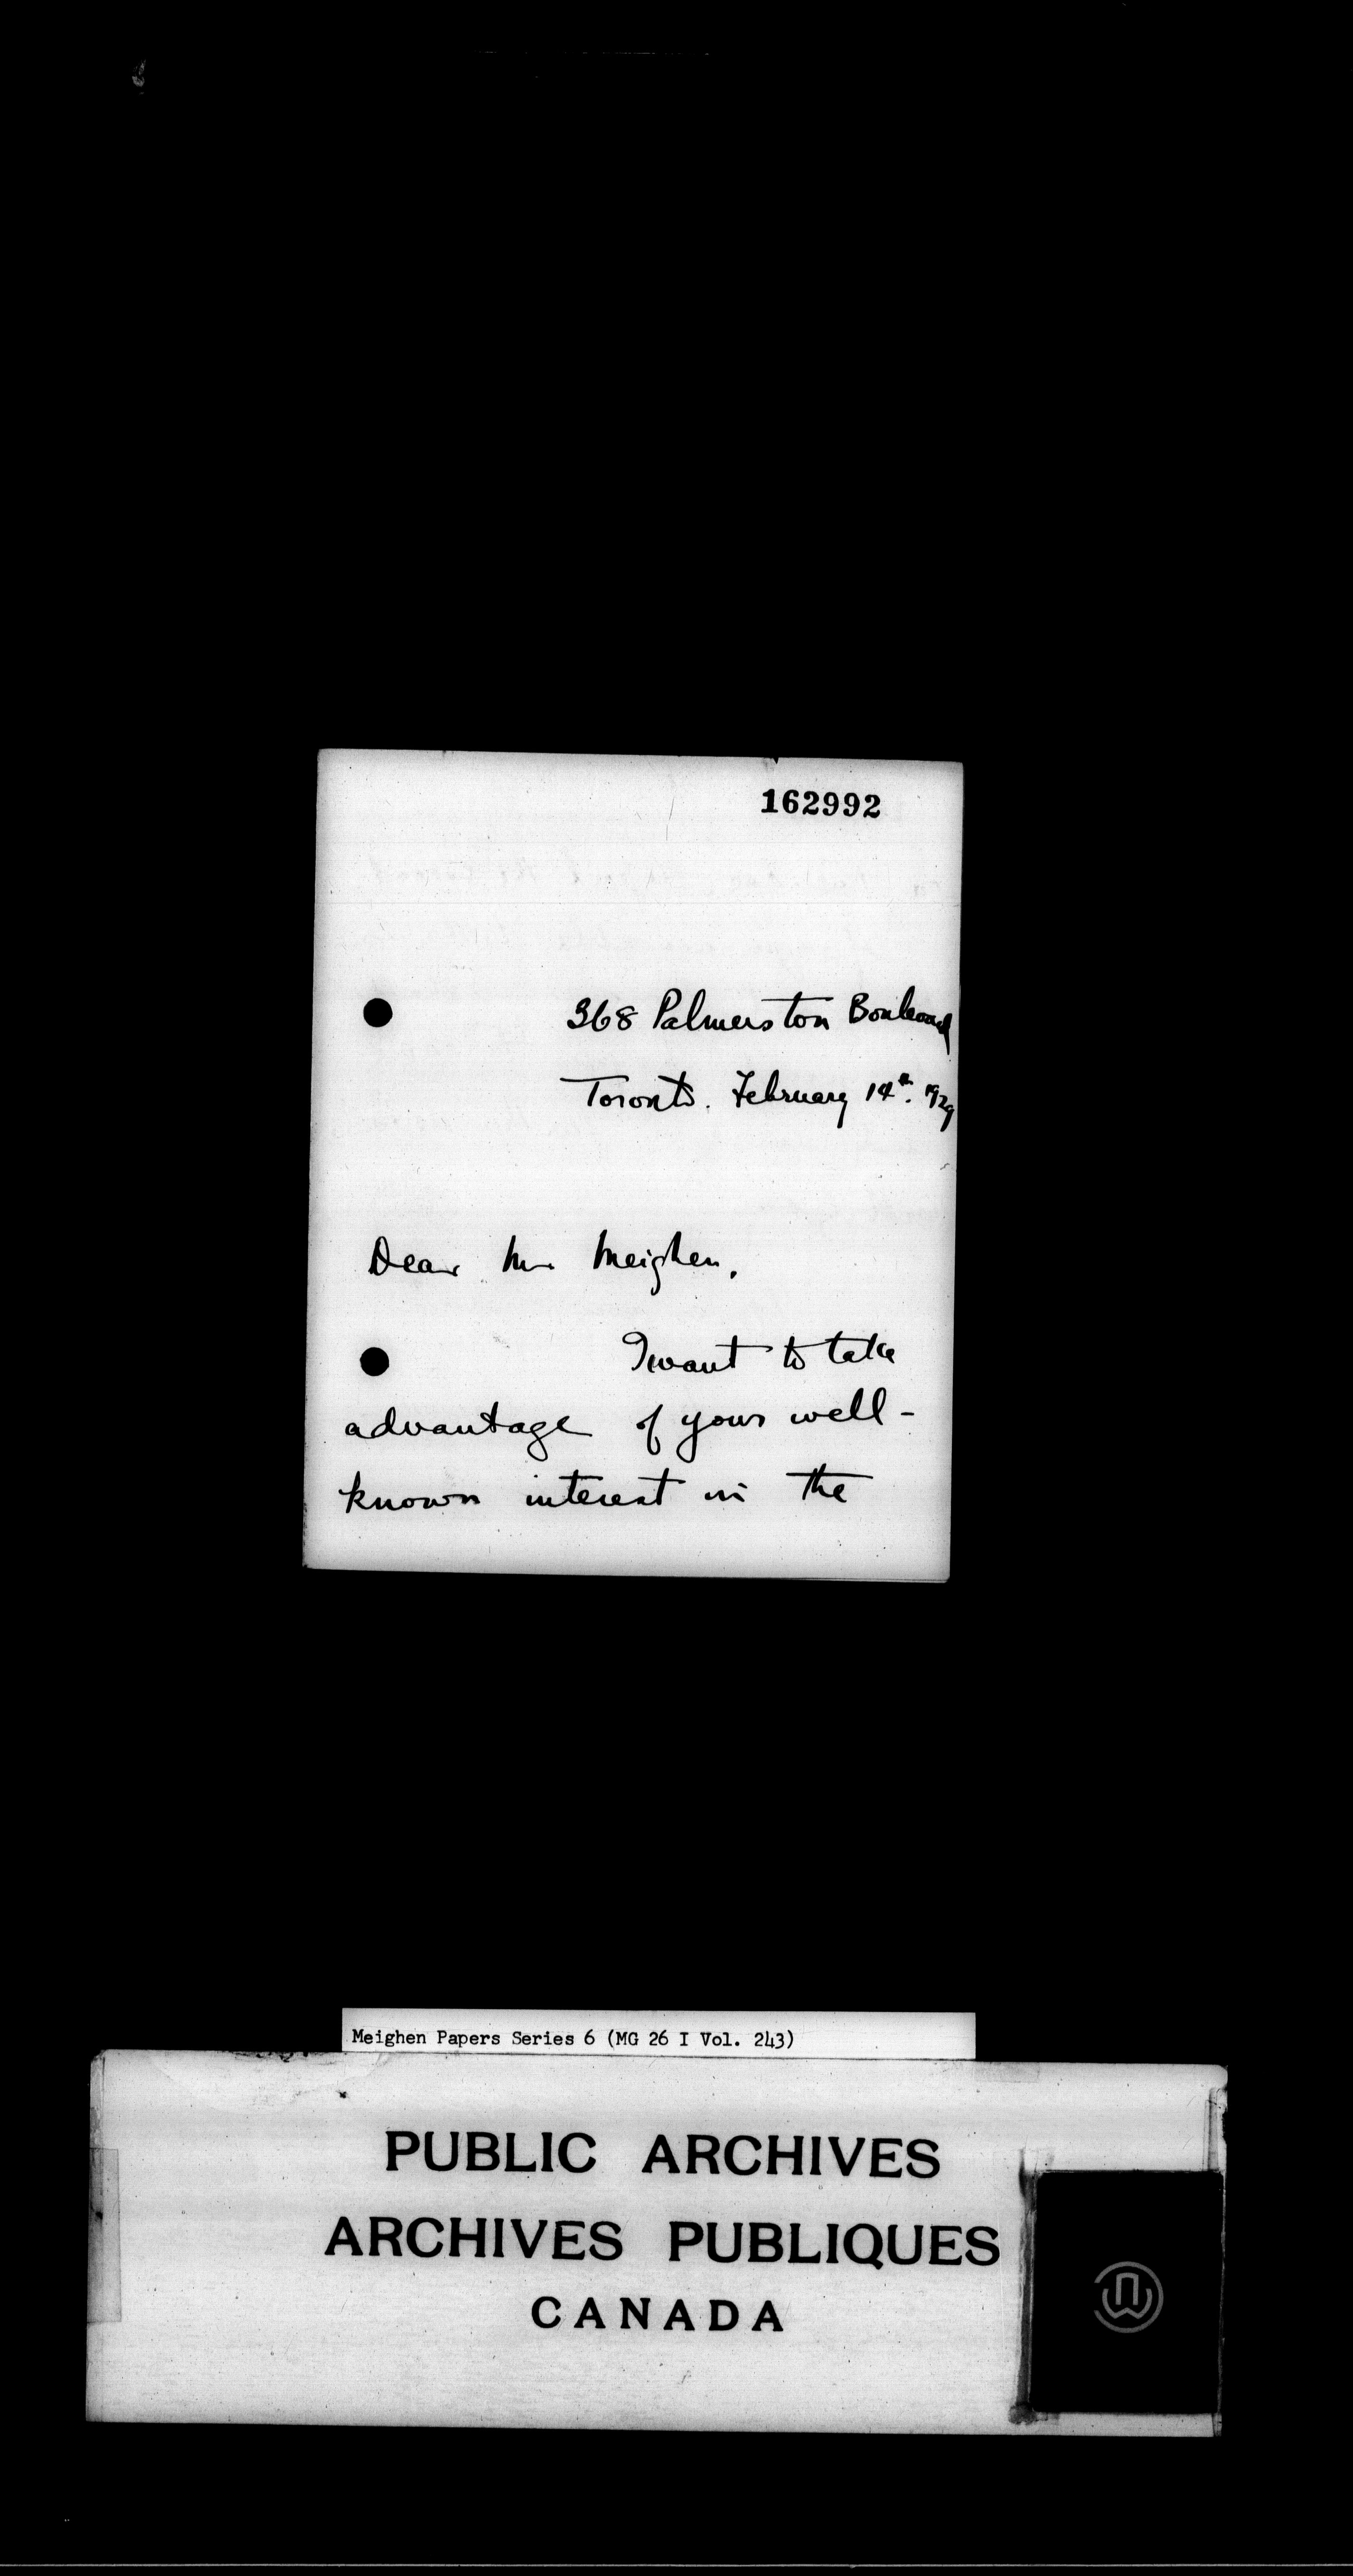 162992
368 Palmerston Boulevard
Toronto. February 14th. 1929
Dear Mr Meighen,
I want to take
advantage of your well-
known interest in the
Meighen Papers Series 6 (MG 26 I Vol. 243)
PUBLIC ARCHIVES
ARCHIVES PUBLIQUES
CANADA